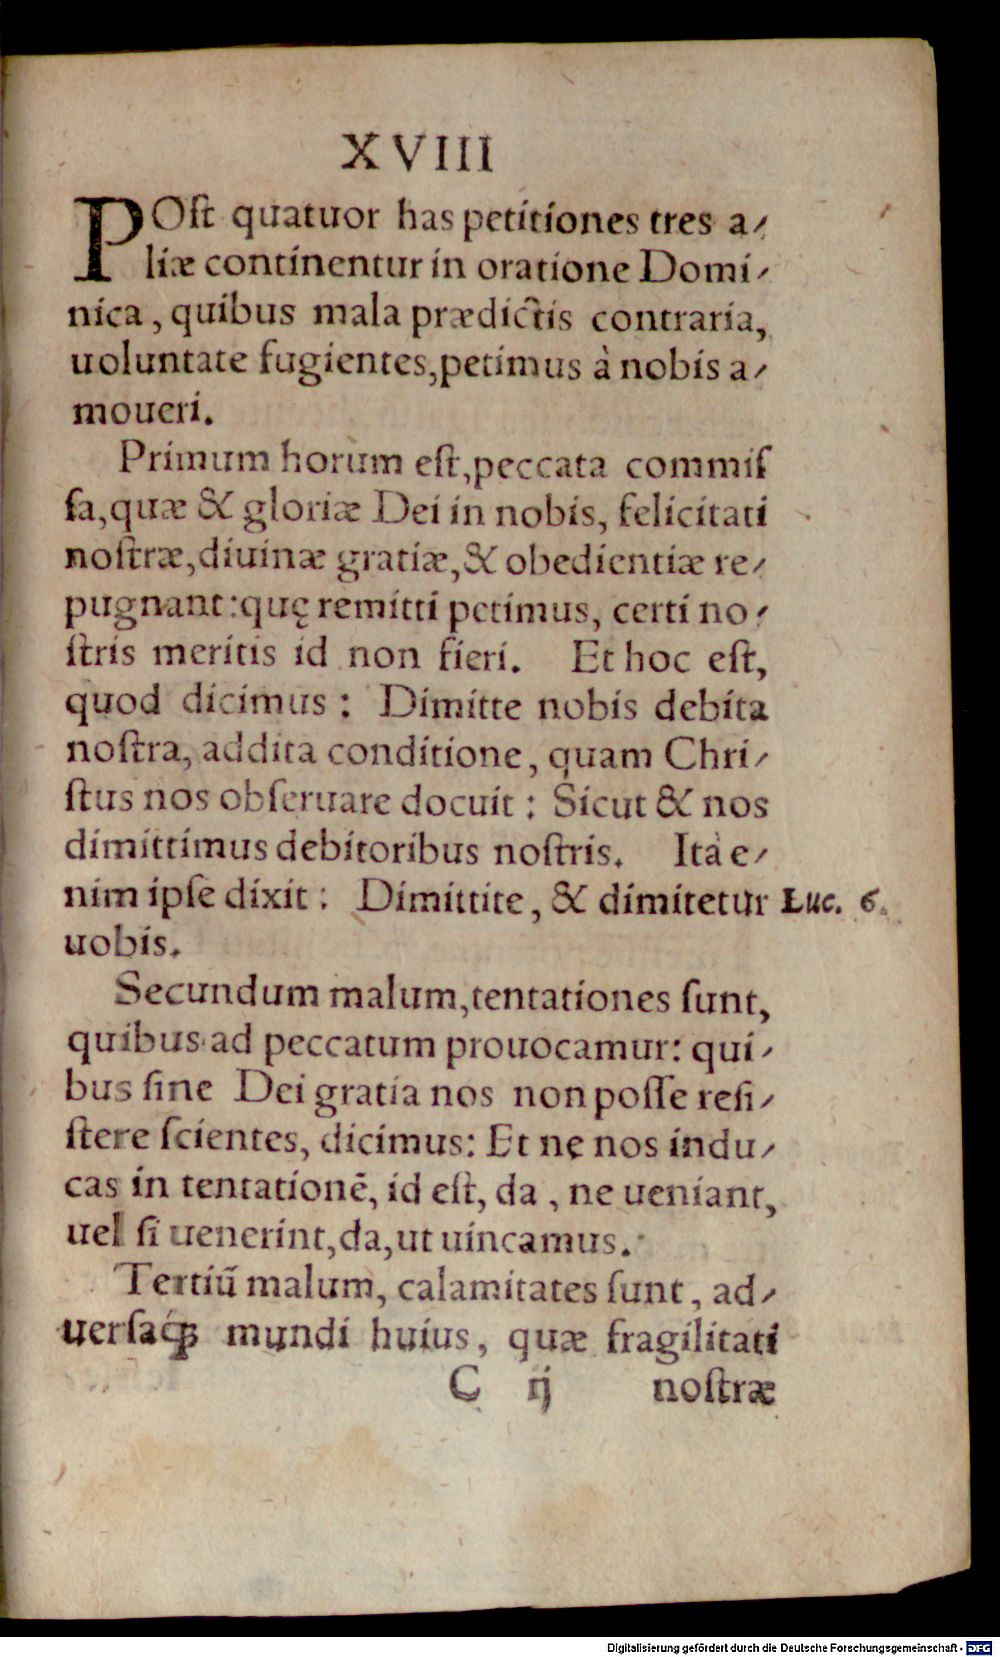 XVIII
POſt quatuor has petitiones tres a⸗
liæ continentur in oratione Domi⸗
nica, quibus mala prædictis contraria,
uoluntate fugientes, petimus à nobis a⸗
moueri.
Primum horum eſt, peccata commiſ
ſa, quæ & gloriæ Dei in nobis, felicitati
noſtræ, diuinæ gratiæ, & obedientiæ re⸗
pugnant: quę remitti petimus, certi no⸗
ſtris meritis id non fieri. Et hoc eſt,
quod dicimus: Dimitte nobis debita
noſtra, addita conditione, quam Chri⸗
ſtus nos obſeruare docuit: Sicut & nos
dimittimus debitoribus noſtris. Ita e⸗
nim ipſe dixit: Dimittite, & dimitetur Luc. 6.
uobis.
Secundum malum, tentationes ſunt,
quibus ad peccatum prouocamur: qui⸗
bus ſine Dei gratia nos non poſſe reſi⸗
ſtere ſcientes, dicimus: Et ne nos indu⸗
cas in tentationē, id eſt, da, ne ueniant,
uel ſi uenerint, da, ut uincamus.
Tertiū malum, calamitates ſunt, ad⸗
uerſaq́ꝫ mundi huius, quæ fragilitati
C ij noſtræ
Digitalisierung gefördert durch die Deutsche Forschungsgemeinschaft - DFG